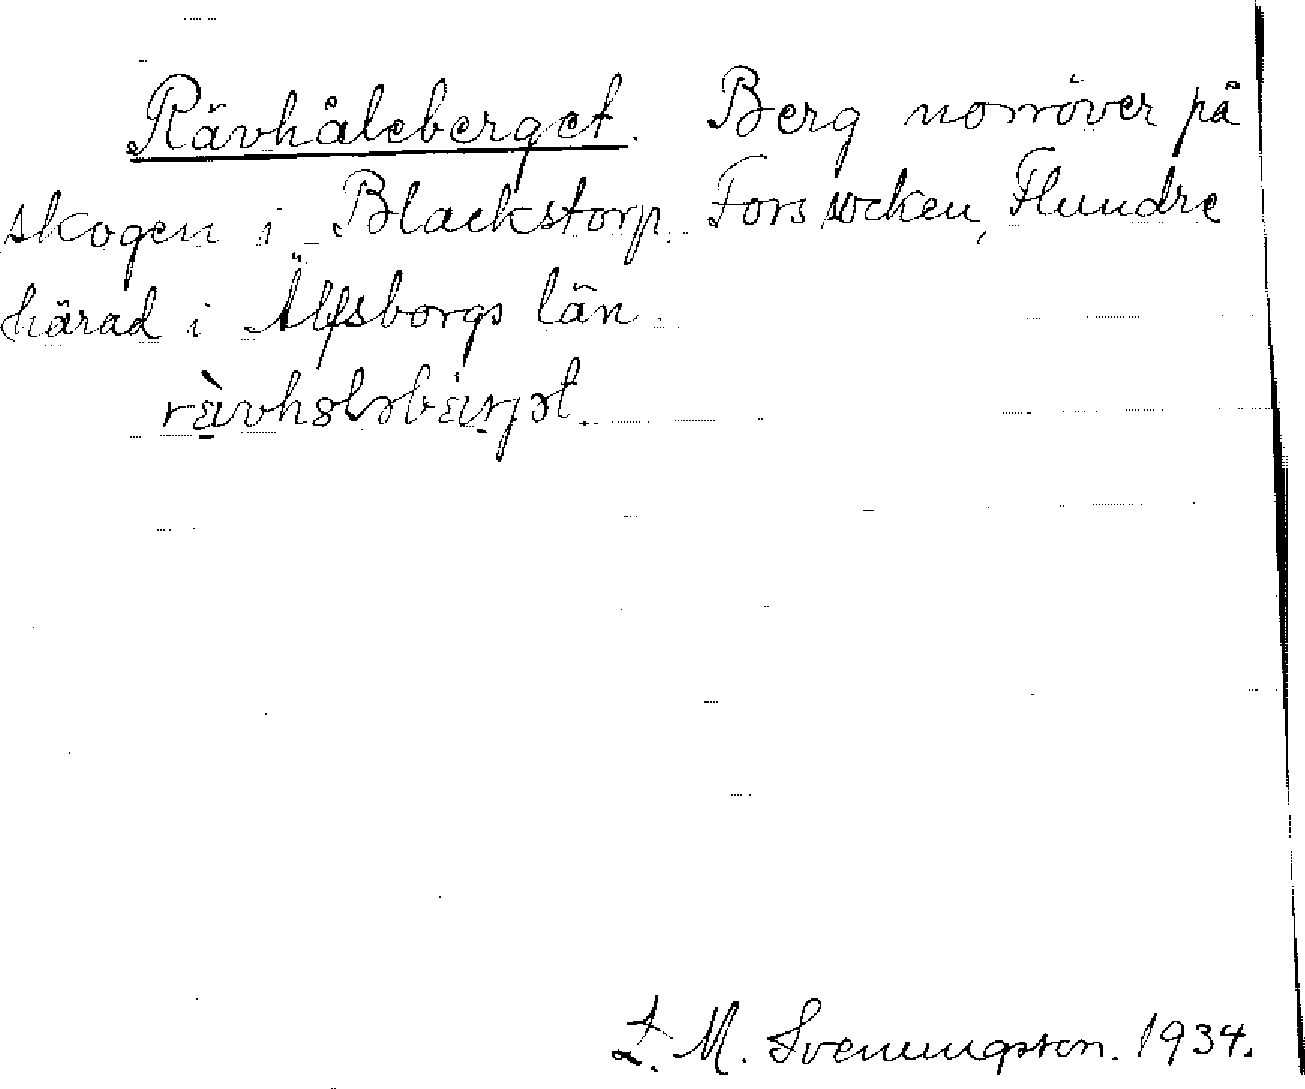 Rävhåleberget. Berg norröver på
skogen i Blackstorp. Fors socken, Flundre
härad i Älfsborgs län.
M. Svenungsson. 1934.